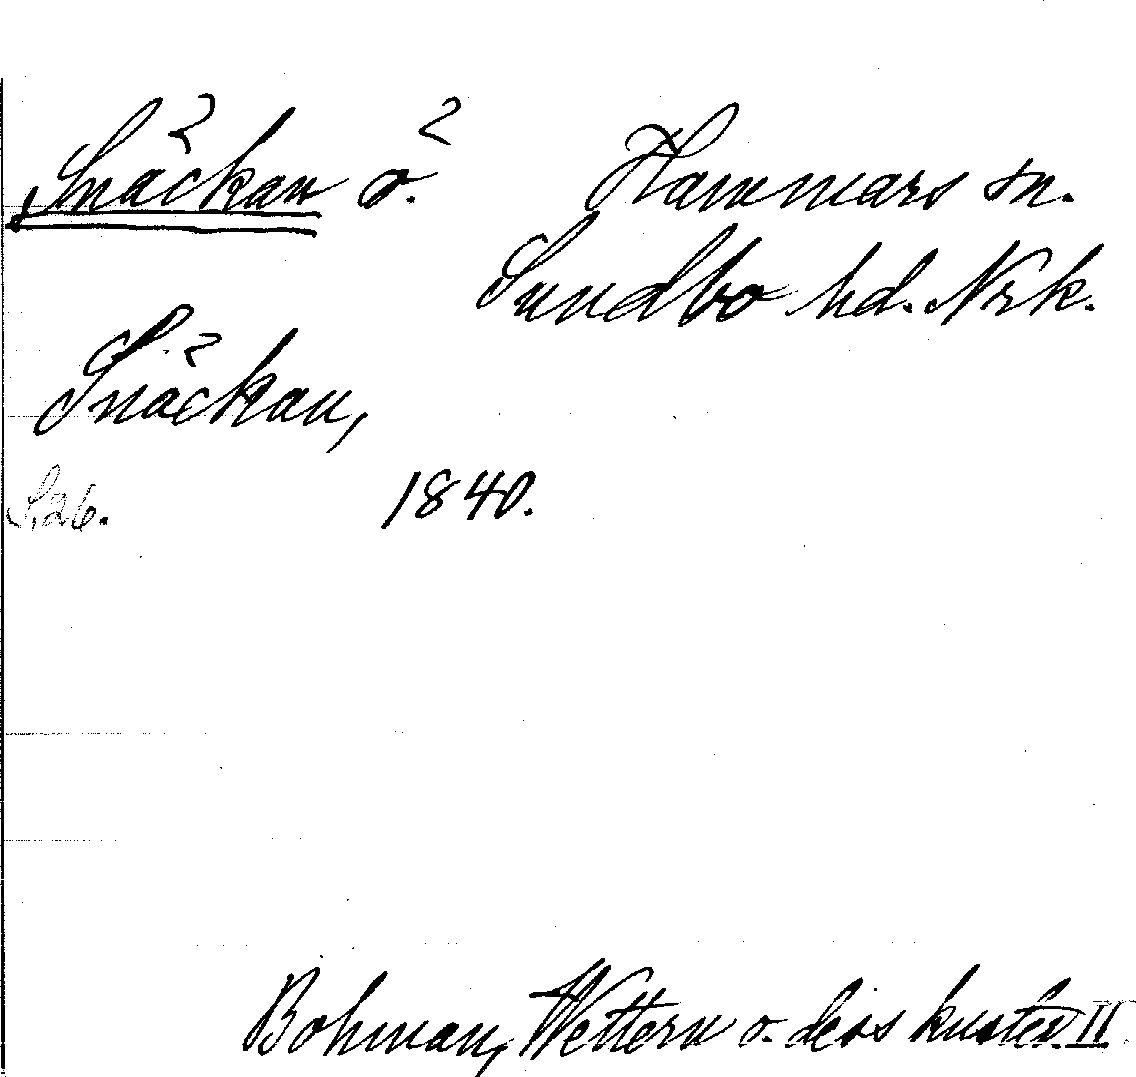 Snäckan ö. Hammars sn.
Sundbo hd. Nrk.
Snäckan,
S. 26. 1840.
Bohman, Wettern o. dess kuster II.